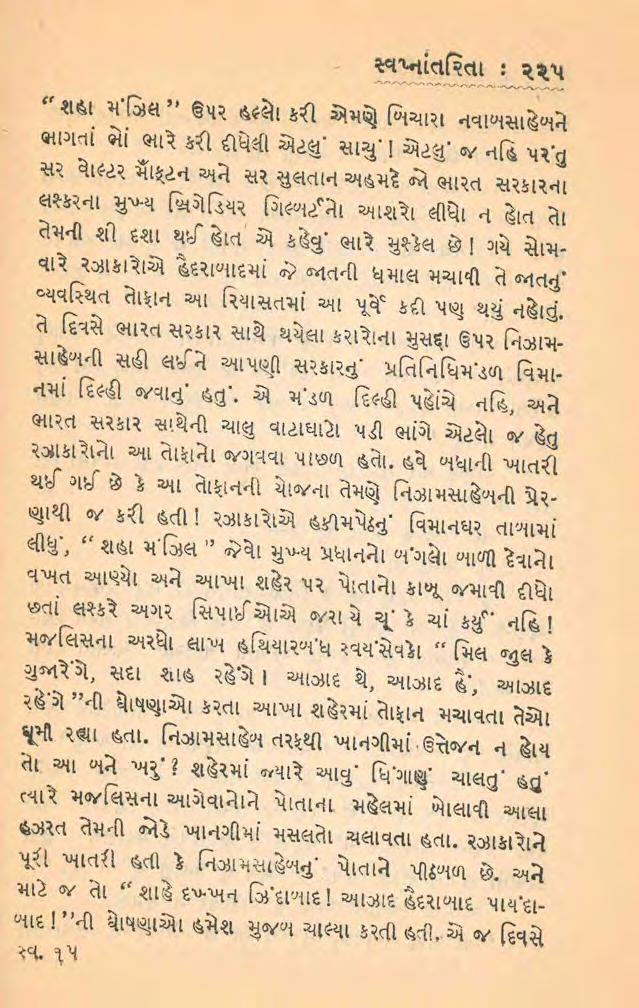 સ્વપ્નાંતરિતા : ૨૨૫
“શહા મંઝિલ” ઉપર હલ્લો કરી એમણે બિચારા નવાબસાહેબને
ભાગતાં ભોં ભારે કરી દીધેલી એટલું સાચું! એટલું જ નહિ પરંતુ
સર વોલ્ટર મૉંક્ટન અને સર સુલતાન અહમદે જો ભારત સરકારના
લશ્કરના મુખ્ય બ્રિગેડિયર ગિલ્બર્ટનો આશરો લીધો ન હોત તો
તેમની શી દશા થઈ હોત એ કહેવું ભારે મુશ્કેલ છે! ગયે સોમ-
વારે રઝાકારોએ હૈદરાબાદમાં જે જાતની ધમાલ મચાવી તે જાતનું
વ્યવસ્થિત તોફાન આ રિયાસતમાં આ પૂર્વે કદી પણ થયું નહોતું.
તે દિવસે ભારત સરકાર સાથે થયેલા કરારોના મુસદ્દા ઉપર નિઝામ-
સાહેબની સહી લઈને આપણી સરકારનું પ્રતિનિધિમંડળ વિમા-
નમાં દિલ્હી જવાનું હતું. એ મંડળ દિલ્હી પહોંચે નહિ, અને
ભારત સરકાર સાથેની ચાલુ વાટાઘાટો પડી ભાંગે એટલો જ હેતુ
રઝાકારોનો આ તોફાનો જગવવા પાછળ હતો. હવે બધાની ખાતરી
થઈ ગઈ છે કે આ તોફાનની યોજના તેમણે નિઝામસાહેબની પ્રેર-
ણાથી જ કરી હતી! રઝાકારોએ હકીમપેઠનું વિમાનઘર તાબામાં
લીધું, “શહા મંઝિલ” જેવો મુખ્ય પ્રધાનનો બંગલો બાળી દેવાનો
વખત આણ્યો અને આખા શહેર પર પોતાનો કાબૂ જમાવી દીધો
છતાં લશ્કરે અગર સિપાઈઓએ જરાયે ચૂં કે ચાં કર્યું નહિ!
મજલિસના અરધો લાખ હથિયારબંધ સ્વયંસેવકો “મિલ જુલ કે
ગુજારેંગે, સદા શાહ રહેંગે। આઝાદ થે, આઝાદ હૈં, આઝાદ
રહેંગે”ની ઘોષણાઓ કરતા આખા શહેરમાં તોફાન મચાવતા તેઓ
ઘૂમી રહ્યા હતા. નિઝામસાહેબ તરફથી ખાનગીમાં ઉત્તેજન ન હોય
તો આ બને ખરું? શહેરમાં જ્યારે આવું ધિંગાણું ચાલતું હતું
ત્યારે મજલિસના આગેવાનોને પોતાના મહેલમાં બોલાવી આલા
હઝરત તેમની જોડે ખાનગીમાં મસલતો ચલાવતા હતા. રઝાકારોને
પૂરી ખાતરી હતી કે નિઝામસાહેબનું પોતાને પીઠબળ છે. અને
માટે જ તો “શાહે દખ્ખન ઝિંદાબાદ! આઝાદ હૈદરાબાદ પાયંદા-
બાદ!”ની ઘોષણાઓ હમેશ મુજબ ચાલ્યા કરતી હતી. એ જ દિવસે
સ્વ. ૧૫